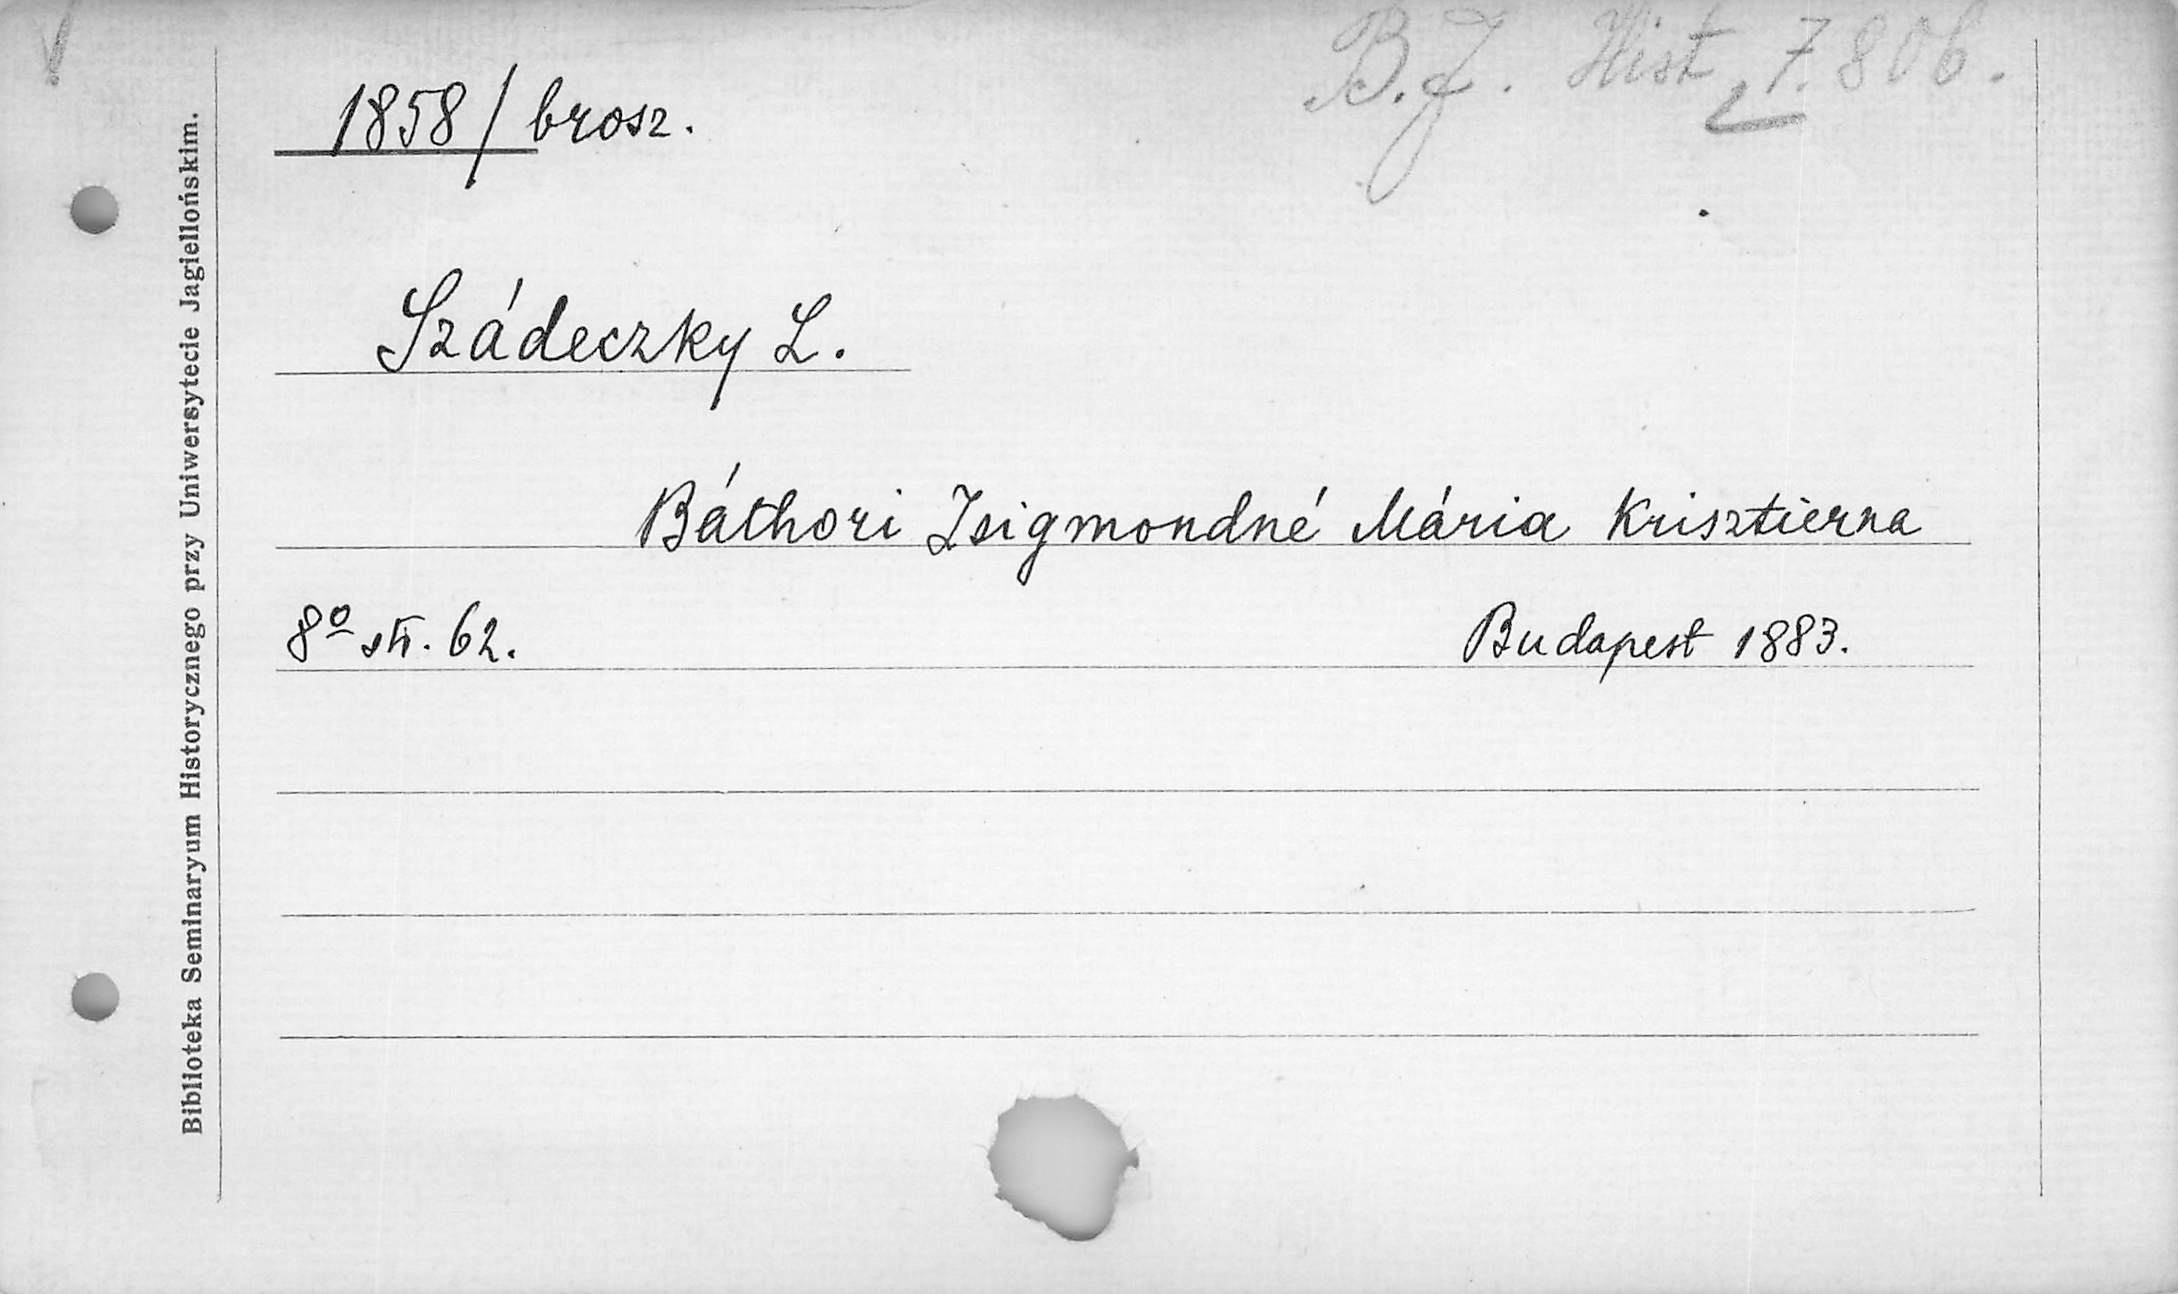 B.J. Hist. 7.806.
1858/brosz.
Szádeczky L.
Báthori Zsigmondné Mária Krisztierna
8º str. 62. Budapest 1883.
Biblioteka Seminaryum Historycznego przy Uniwersytecie Jagiellońskim.